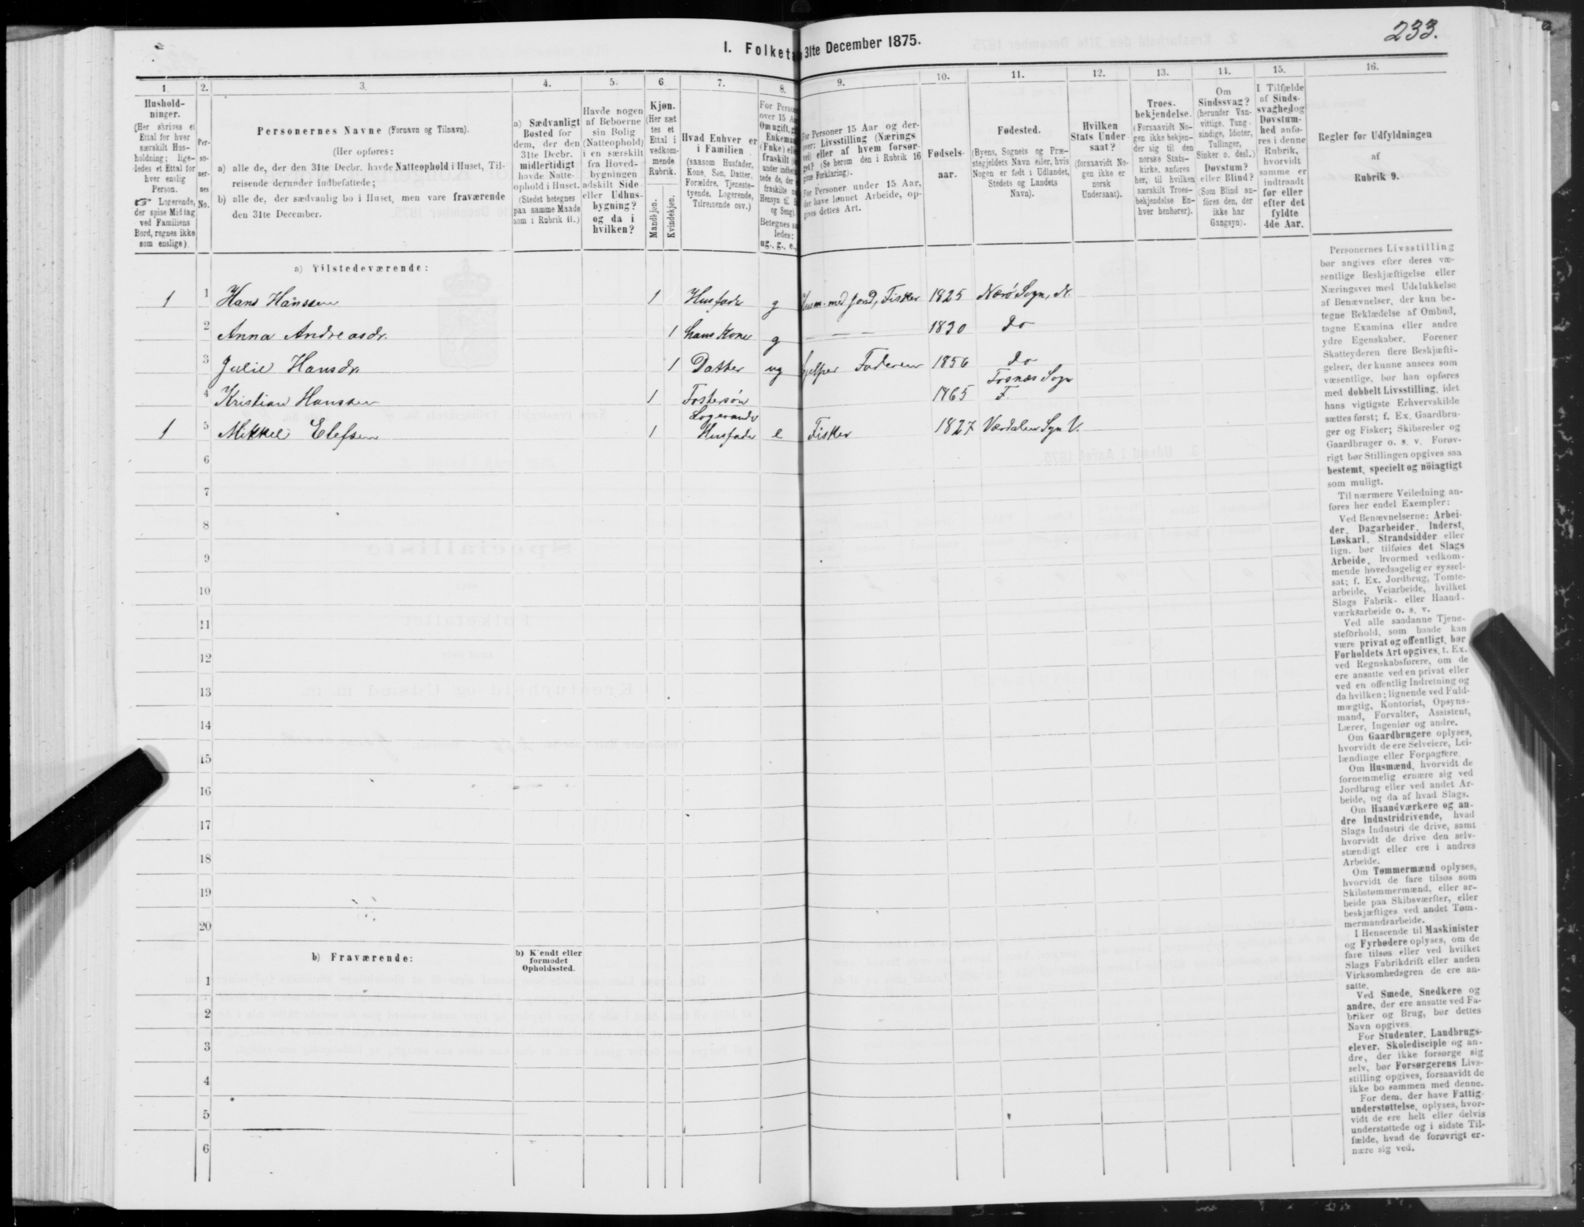 233.
I. Folketa
31te December 1875.
1.
2.
3.
4.
5.
6
7.
8.
9.
10.
11.
12.
13.
14.
15.
16.
Hushold-
ninger.
(Her skrives et
Ettal for hver
særskilt Hus-
holdning; lige-
ledes et Ettal for
hver enslig
Person.
☞ Logerende,
der spise Middag
ved Familiens
Bord, regnes ikke
som enslige).
Per-
so-
ner-
nes
No.
Personernes Navne (Fornavn og Tilnavn).
(Her opføres:
a) alle de, der den 31te Decbr. havde Natteophold i Huset, Til-
reisende derunder indbefattede;
b) alle de, der sædvanlig bo i Huset, men vare fraværende
den 31te December.
a) Sædvanligt
Bosted for
dem, der den
31te Decbr.
midlertidigt
havde Natte-
ophold i Huset.
(Stedet betegnes
paa samme Maade
som i Rubrik 11.)
Havde nogen
af Beboerne
sin Bolig
(Natteophold)
i en særskilt
fra Hoved-
bygningen
adskilt Side-
eller Udhus-
bygning?
og da i
hvilken?
Kjøn.
(Her sæt
tes et
Ettal i
vedkom-
mende
Rubrik.
Mandkjøn.
Kvindekjøn.
Hvad Enhver er
i Familien
(saasom Husfader,
Kone, Søn, Datter,
Forældre, Tjeneste-
tyende, Logerende,
Tilreisende osv.)
For Perso
over 15 A
Om ugift, g
Enkeman
(Enke) el
fraskilt
Betegnes s
ledes:
ug., g., e.,
For Personer 15 Aar og der-
over: Livsstilling (Nærings
vei) eller af hvem forsør-
get? (Se herom den i Rubrik 16
givne Forklaring).
For Personer under 15 Aar,
der have lønnet Arbeide, op-
gives dettes Art.
Fødsels-
aar.
Fødested.
(Byens, Sognets og Præ-
stegjeldets Navn eller, hvis
Nogen er født i Udlandet,
Stedets og Landets
Navn).
Hvilken
Stats Under
saat?
(forsaavidt No-
gen ikke er
norsk
Undersaat).
Troes-
bekjendelse.
(Forsaavidt No-
gen ikke bekjen-
der sig til den
norske Stats-
kirke, anføres
her, til hvilken
særskilt Troes-
bekjendelse En-
hver henhører).
Om
Sindssvag?
(herunder Van-
vittige, Tung-
sindige, Idioter,
Tullinger,
Sinker o. desl.)
Døvstum?
eller Blind?
(Som Blind an-
føres den, der
ikke har
Gangsyn).
I Tilfælde
af Sinds-
svaghed og
Døvstum-
hed anfø-
res i denne
Rubrik,
hvorvidt
samme er
indtraadt
før eller
efter det
fyldte
4de Aar.
Regler for Udfyldningen
af
Rubrik 9.
a) Tilstedeværende:
1 1 Hans Hanssen 1 Husfader g Husm. med Jord, Fisker 1825 Nærø Sogn, N.
2 Anna Andreasdr. 1 hans Kone g — — 1830 do
3 Julie Hansdr 1 Datter ug hjelper Faderen 1856 do
4 Kristian Hanssen 1 Fosterson 1865 Fosnæs Sogn F.
1 5 Mikkel Elefsen 1 Logerende Husfader e Fisker 1827 Værdalen Sogn V.
6
7
8
9
10
11
12
13
14
15
16
17
18
19
20
b) Fraværende:
b) Kendt eller
formodet
Opholdssted.
1
2
3
4
5
6
Personernes Livsstilling
bør angives efter deres væ-
sentlige Beskjæftigelse eller
Næringsvei med Udelukkelse
af Benævnelser, der kun be-
tegne Beklædelse af Ombud,
tagne Examina eller andre
ydre Egenskaber. Forener
Skatteyderen flere Beskjæfti-
gelser, der kunne ansees som
væsentlige, bør han opføres
med dobbelt Livsstilling, idet
hans vigtigste Erhvervskilde
sættes først; f. Ex. Gaardbru-
ger og Fisker; Skibsreder og
Gaardbruger o. s. v. Forøv-
rigt bør Stillingen opgives saa
bestemt, specielt og nöiagtigt
som muligt.
Til nærmere Veiledning an-
føres her endel Exempler:
Ved Benævnelserne: Arbei-
der, Dagarbeider, Inderst,
Løskarl, Strandsidder eller
lign. bør tilføies det Slags
Arbeide, hvormed vedkom-
mende hovedsagelig er syssel-
sat; f. Ex. Jordbrug, Tomte-
arbeide, Veiarbeide, hvilket
Slags Fabrik- eller Haand-
værksarbeide o. s. v.
Ved alle saadanne Tjene-
steforhold, som baade kan
være privat og offentligt, bør
Forholdets Art opgives, t. Ex.
ved Regnskabsførere, om de
ere ansatte ved en privat eller
ved en offentlig Indretning og
da hvilken; lignende ved Fuld-
mægtig, Kontorist, Opsyns-
mand, Forvalter, Assistent,
Lærer, Ingeniør og andre.
Om Gaardbrugere oplyses,
hvorvidt de ere Selveiere, Lei-
lændinge eller Forpagtere.
Om Husmænd, hvorvidt de
fornemmelig ernære sig ved
Jordbrug eller ved andet Ar-
beide, og da af hvad Slags.
Om Haandværkere og an-
dre Industridrivende, hvad
Slags Industri de drive, samt
hvorvidt de drive den selv-
stændigt eller ere i andres
Arbeide.
Om Tømmermænd oplyses,
hvorvidt de fare tilsøs som
Skibstømmermænd, eller ar-
beide paa Skibsværfter, eller
beskjæftiges ved andet Tøm-
mermandsarbeide.
I Henseende til Maskinister
og Fyrbødere oplyses, om de
fare tilsøs eller ved hvilket
Slags Fabrikdrift eller anden
Virksomhedsgren de ere an-
satte.
Ved Smede, Snedkere og
andre, der ere ansatte ved Fa-
briker og Brug, bør dettes
Navn opgives.
For Studenter, Landbrugs-
elever, Skoledisciple og an-
dre, der ikke forsørge sig
selv, bør Forsørgerens Livs-
stilling opgives, forsaavidt de
ikke bo sammen med denne.
For dem, der have Fattig-
understøttelse, oplyses, hvor-
vidt de ere helt eller delvis
understøttede og i sidste Til-
fælde, hvad de forøvrigt er-
nære sig ved.